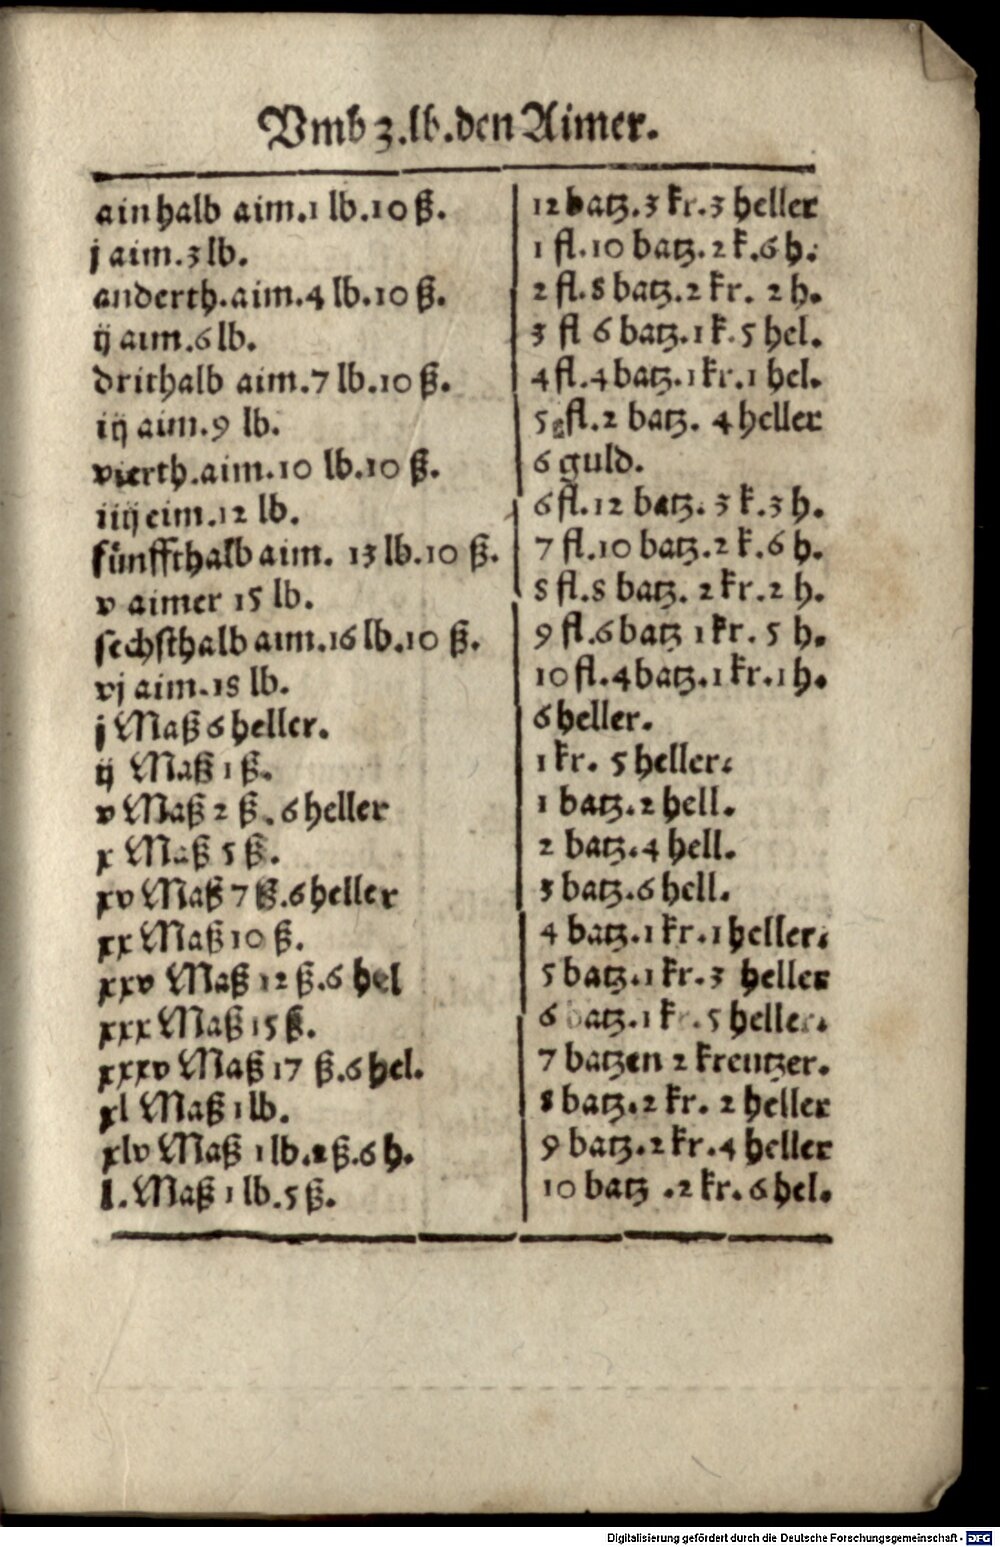 Vmb 3.lb.den Aimer.
ainhalb aim.1 lb.10 ß. 12 batz.3 kr.3 heller
j aim.3 lb. 1 fl.10 batz.2 k.6 h.
anderth.aim.4 lb.10 ß. 2 fl.8 batz.2 kr. 2 h.
ij aim.6 lb. 3 fl 6 batz.1 k.5 hel.
drithalb aim.7 lb.10 ß. 4 fl.4 batz.1 kr.1 hel.
iij aim.9 lb. 5 fl.2 batz. 4 heller
vierth.aim.10 lb.10 ß. 6 guld.
iiij eim.12 lb. 6 fl.12 batz.3 k.3 h.
fünffthalb aim. 13 lb.10 ß. 7 fl.10 batz.2 k.6 h.
v aimer 15 lb. 8 fl.8 batz. 2 kr.2 h.
sechsthalb aim.16 lb.10 ß. 9 fl.6 batz 1 kr. 5 h.
vj aim.18 lb. 10 fl.4 batz.1 kr.1 h.
j Maß 6 heller. 6 heller.
ij Maß 1 ß. 1 kr. 5 heller.
v Maß 2 ß. 6 heller 1 batz.2 hell.
x Maß 5 ß. 2 batz.4 hell.
xv Maß 7 ß.6 heller 3 batz.6 hell.
xx Maß 10 ß. 4 batz.1 kr.1 heller.
xxv Maß 12 ß.6 hel 5 batz.1 kr.3 heller
xxx Maß 15 ß. 6 batz.1 kr.5 heller.
xxxv Maß 17 ß.6 hel. 7 batzen 2 kreutzer.
xl Maß 1 lb. 8 batz.2 kr. 2 heller
xlv Maß 1 lb.2 ß.6 h. 9 batz.2 kr.4 heller
l. Maß 1 lb.5 ß. 10 batz .2 kr.6 hel.
Digitalisierung gefördert durch die Deutsche Forschungsgemeinschaft - DFG